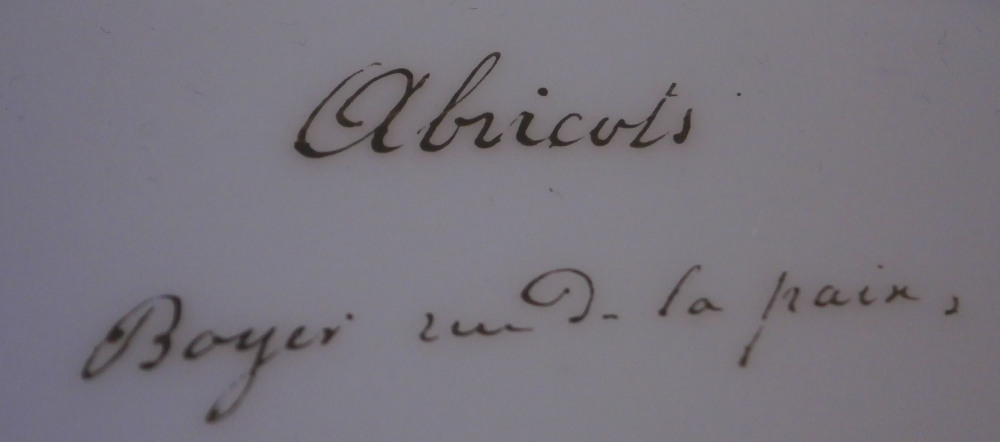 Abricots
Boyer rue de la paix,